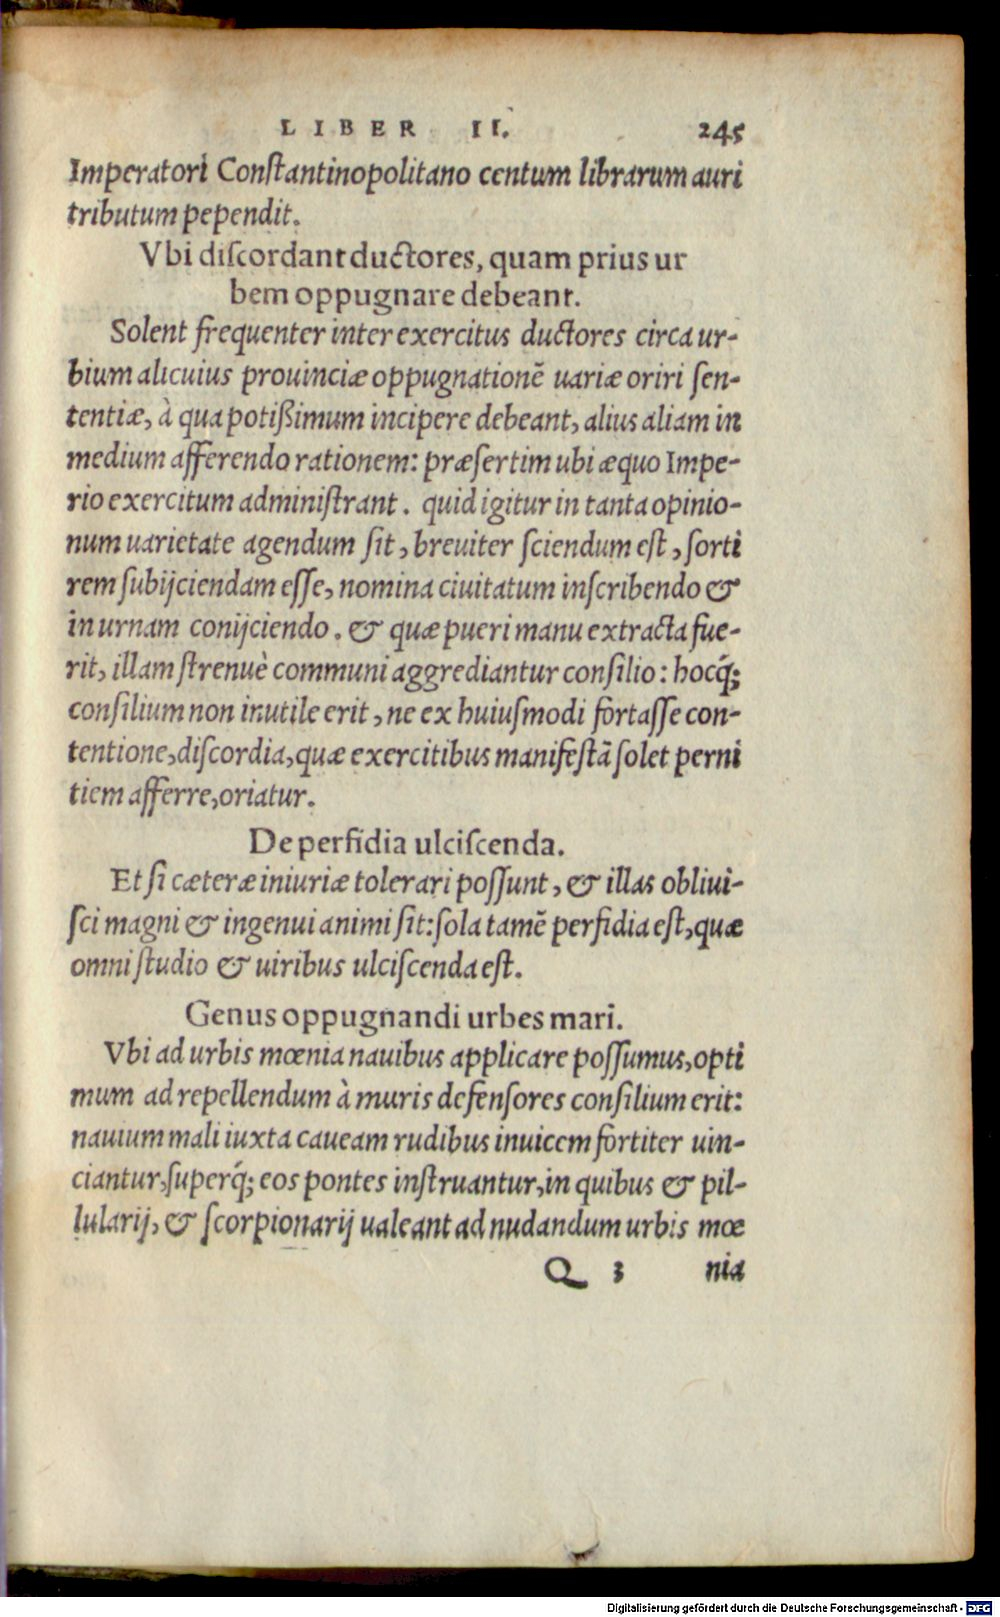 LIBER II. 245
Imperatori Constantinopolitano centum librarum auri
tributum pependit.
Vbi discordant ductores, quam prius ur
bem oppugnare debeant.
Solent frequenter inter exercitus ductores circa ur-
bium alicuius prouinciæ oppugnationẽ uariæ oriri sen-
tentiæ, à qua potißimum incipere debeant, alius aliam in
medium afferendo rationem: præsertim ubi æquo Impe-
rio exercitum administrant. quid igitur in tanta opinio-
num uarietate agendum sit, breuiter sciendum est, sorti
rem subijciendam esse, nomina ciuitatum inscribendo &
in urnam conijciendo. & quæ pueri manu extracta fue-
rit, illam strenuè communi aggrediantur consilio: hocq́;
consilium non inutile erit, ne ex huiusmodi fortasse con-
tentione, discordia, quæ exercitibus manifestã solet perni
tiem afferre, oriatur.
De perfidia ulciscenda.
Et si cæteræ iniuriæ tolerari possunt, & illas obliui-
sci magni & ingenui animi sit: sola tamẽ perfidia est, quæ
omni studio & uiribus ulciscenda est.
Genus oppugnandi urbes mari.
Vbi ad urbis mœnia nauibus applicare possumus, opti
mum ad repellendum à muris defensores consilium erit:
nauium mali iuxta caueam rudibus inuicem fortiter uin-
ciantur, superq́; eos pontes instruantur, in quibus & pil-
lularij, & scorpionarij ualeant ad nudandum urbis mœ
Q 3 nia
Digitalisierung gefördert durch die Deutsche Forschungsgemeinschaft - DFG